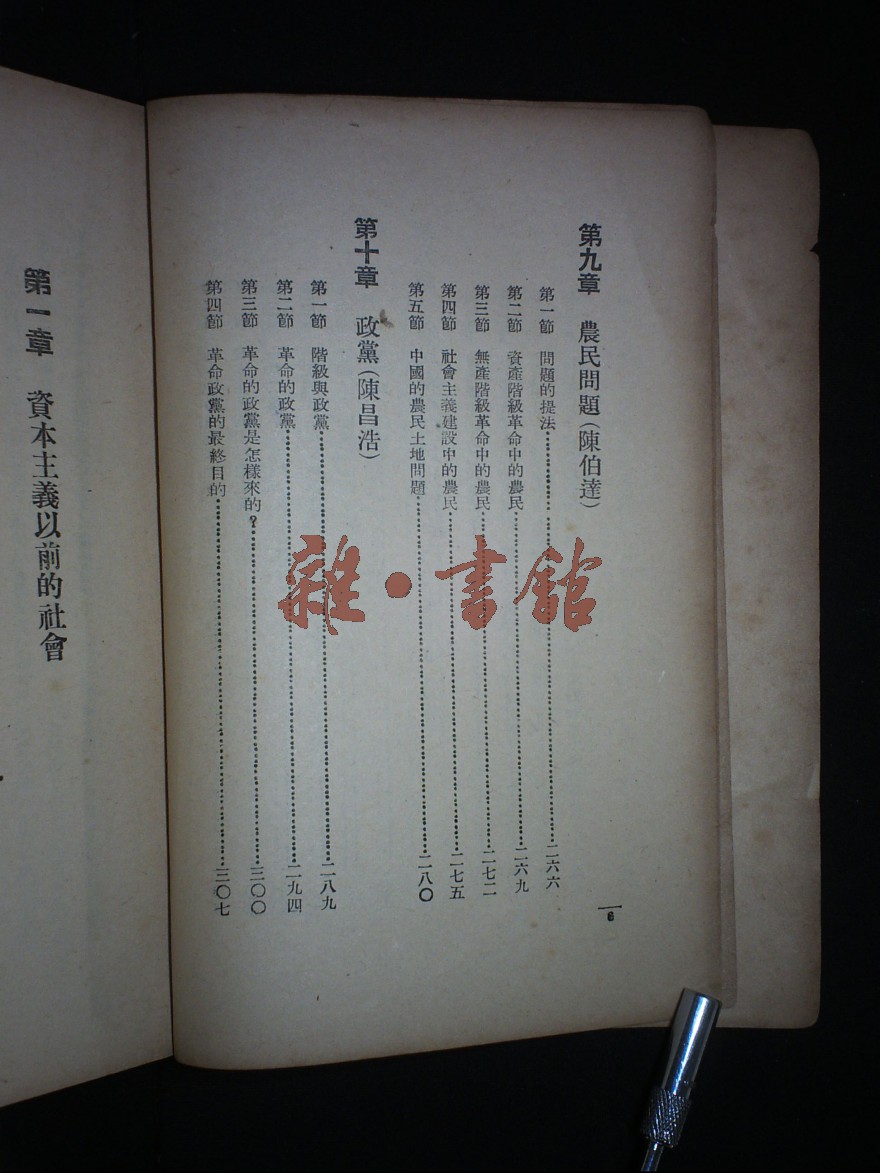 第九章　農民問題（陳伯達）
第一節　問題的提法……二六六
第二節　資產階級革命中的農民……二六九
第三節　無產階級革命中的農民……二七二
第四節　社會主義建設中的農民……二七五
第五節　中國的農民土地問題……二八〇
第十章　政黨（陳昌浩）
第一節　階級與政黨……二八九
第二節　革命的政黨……二九四
第三節　革命的政黨是怎樣來的？……三〇〇
第四節　革命政黨的最終目的……三〇七
6
第一章　資本主義以前的社會
雜·書館